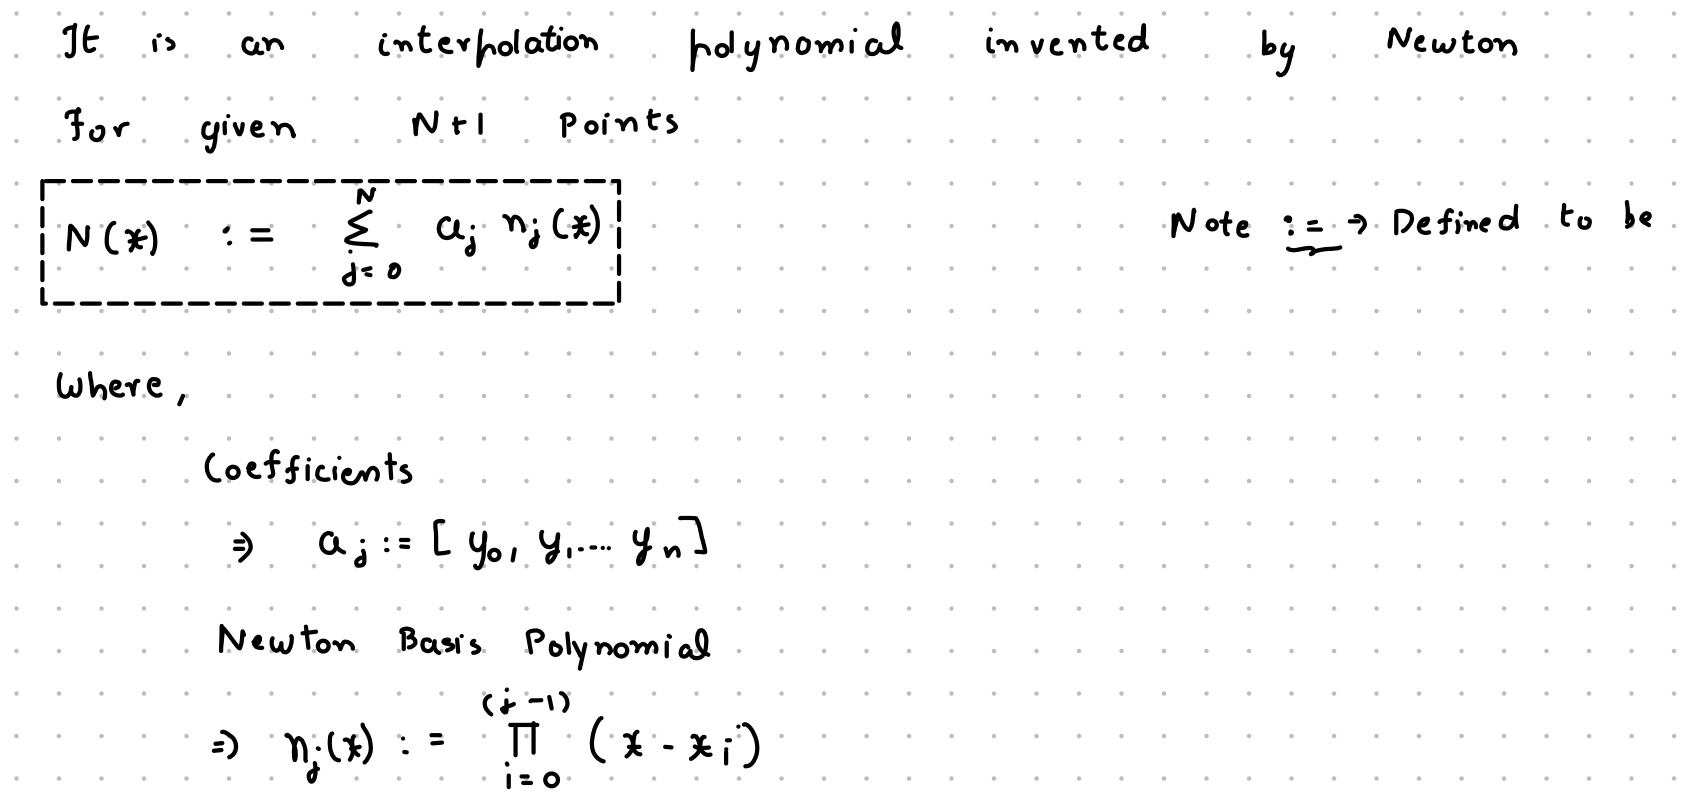 It is an interpolation polynomial invented by Newton
For given N+1 Points
N(x) := N Σ j=0 a_j n_j(x)
Note := → Defined to be
Where,
Coefficients
⇒ a_j := [y_0, y_1.... y_n]
Newton Basis Polynomial
⇒ n_j(x) := (j-1) Π i=0 (x - x_i)